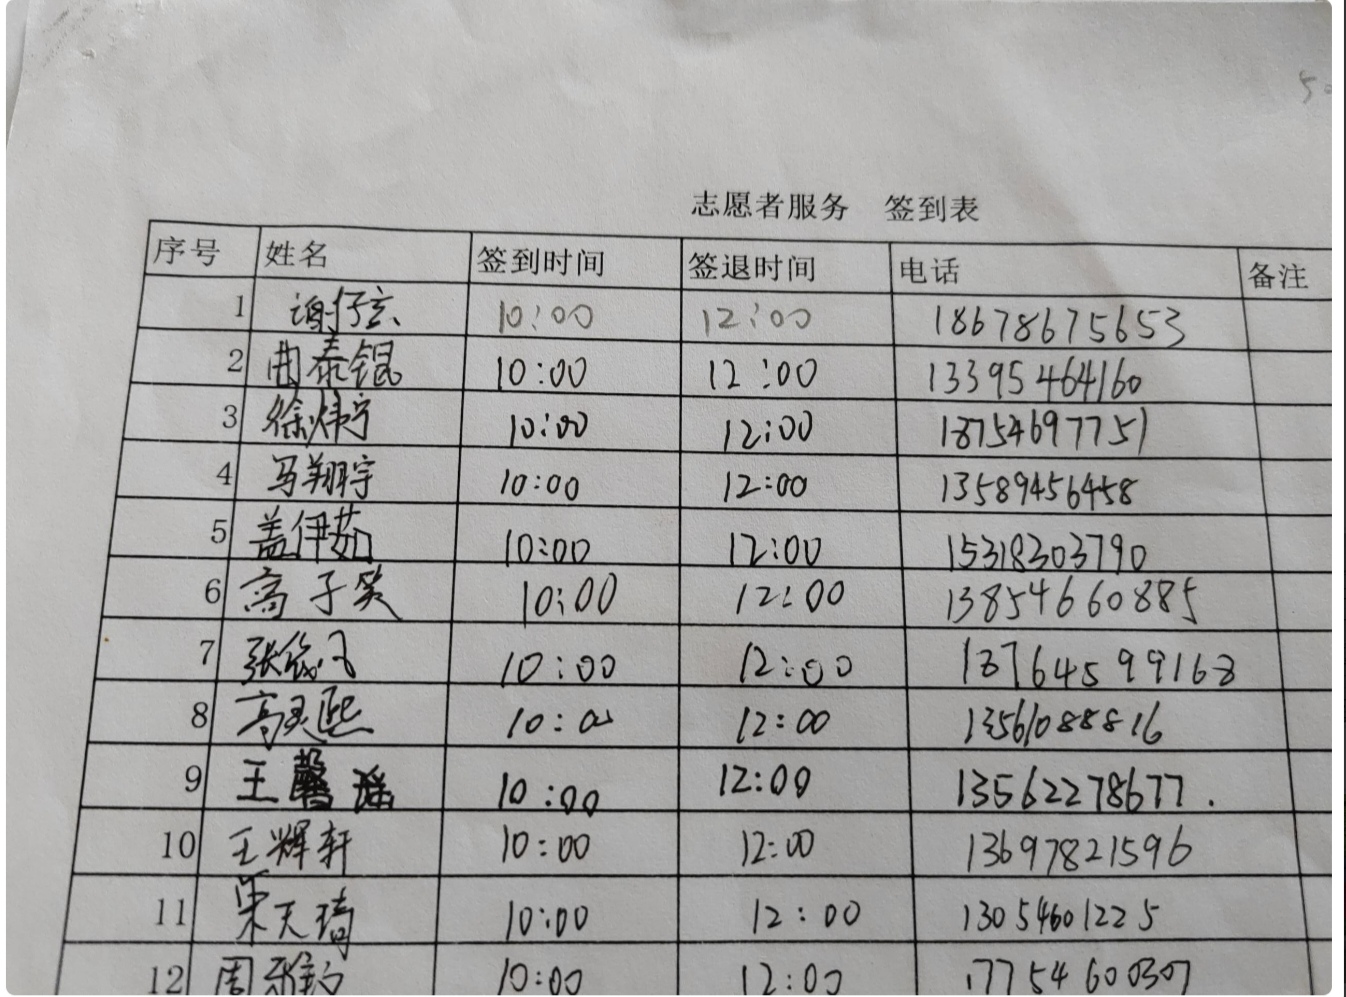 志愿者服务 签到表
序号 姓名 签到时间 签退时间 电话 备注
1 谢仔玄 10:00 12:00 18678675653
2 曲泰锟 10:00 12:00 13395464160
3 徐炜宁 10:00 12:00 18754697751
4 马翔宇 10:00 12:00 13589456458
5 盖伊茹 10:00 12:00 15318303790
6 高子笑 10:00 12:00 13854660885
7 10:00 12:00
8 高灵熙 10:00 12:00 13561088816
9 王馨瑶 10:00 12:00 13562278677.
10 王辉轩 10:00 12:00 13697821596
11 宋天琦 10:00 12:00 13054601225
12 10:00 12:00 17754600307